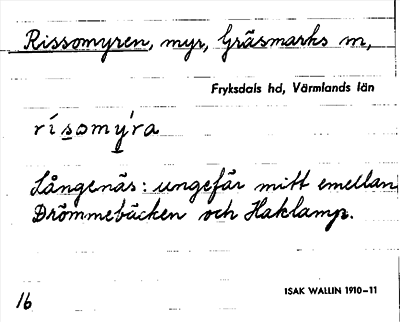 Rissomyren, myr, Gräsmarks sn,
Fryksdals hd, Värmlands län
rísomýra
Långenäs: ungefär mitt emellan
Drömmebäcken och Haklamp.
ISAK WALLIN 1910–11
16